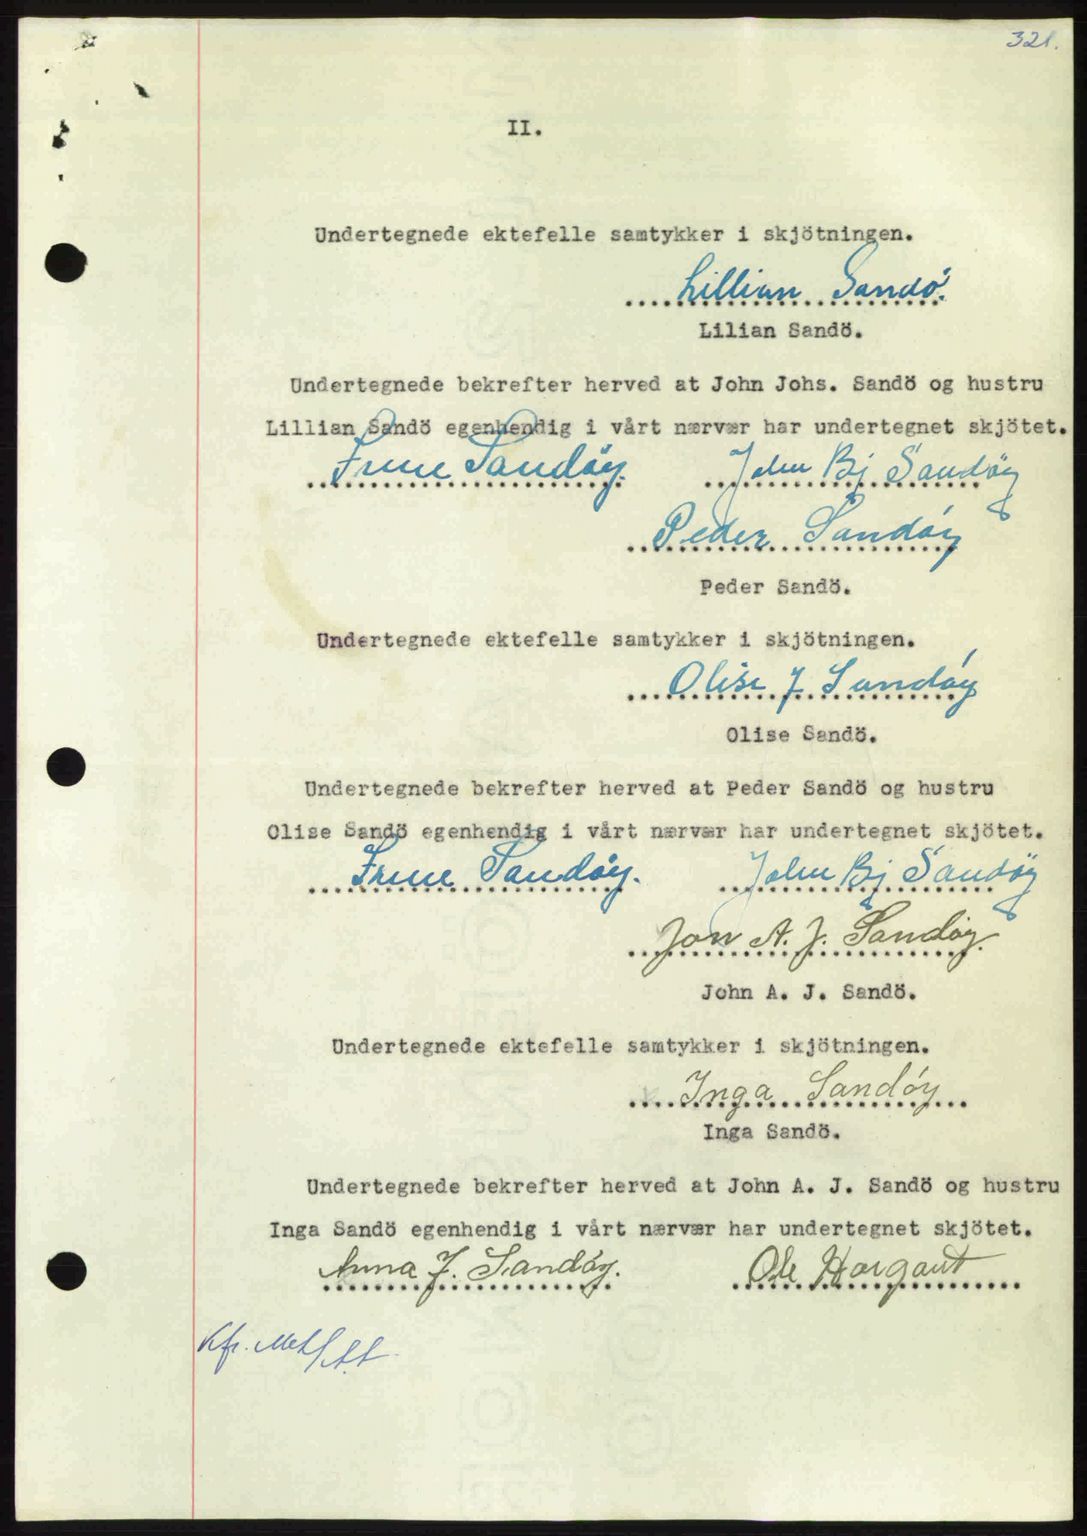 321.
II.
Undertegnede ektefelle samtykker i skjötningen.
Lillian Sandö.
Lilian Sandö.
Undertegnede bekrefter herved at John Johs. Sandö og hustru
Lillian Sandö egenhendig i vårt nærvær har undertegnet skjötet.
Irene Sandöy. John Bj Sandöy
Peder Sandöy
Peder Sandö.
Undertegnede ektefelle samtykker i skjötningen.
Olise J Sandöy
Olise Sandö.
Undertegnede bekrefter herved at Peder Sandö og hustru
Olise Sandö egenhendig i vårt nærvær har undertegnet skjötet.
Irene Sandöy. John Bj Sandöy
Jon A. J. Sandöy.
John A. J. Sandö.
Undertegnede ektefelle samtykker i skjötningen.
Inga Sandóy
Inga Sandö.
Undertegnede bekrefter herved at John A. J. Sandö og hustru
Inga Sandö egenhendig i vårt nærvær har undertegnet skjötet.
Anna J. Sandóy. Ole Horgaut
Kfr.